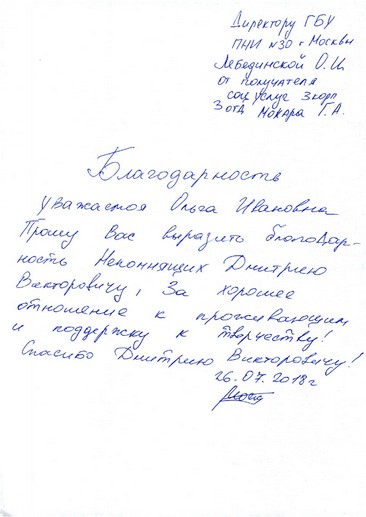 Директору ГБУ
ПНИ №30 г Москвы
Лебединской О.И.
от получателя
соц услуг 3 корп
3 отд Мокара Г.А.
Благодарность
Уважаемая Ольга Ивановна
Прошу Вас выразить благодар-
ность Непомнящих Дмитрию
Викторовичу, За хорошее
отношение к проживающим
и поддержку к творчеству!
Спасибо Дмитрию Викторовичу!
26.07.2018г